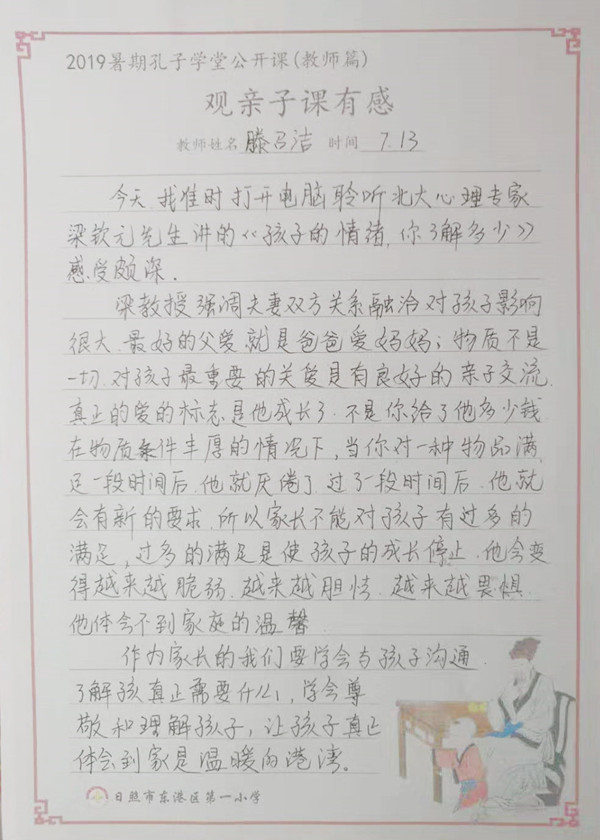 2019暑期孔子学堂公开课(教师篇)
观亲子课有感
教师姓名 滕召洁 时间 7.13
今天我准时打开电脑聆听北大心理专家
梁钦元先生讲的《孩子的情绪,你了解多少》
感受颇深.
梁教授强调夫妻双方关系融洽对孩子影响
很大.最好的父爱就是爸爸爱妈妈;物质不是
一切.对孩子最重要的关爱是有良好的亲子交流.
真正的爱的标志是他成长了.不是你给了他多少钱.
在物质条件丰厚的情况下,当你对一种物品满
足一段时间后.他就厌倦了.过了一段时间后.他就
会有新的要求.所以家长不能对孩子有过多的
满足,过多的满足是使孩子的成长停止.他会变
得越来越脆弱.越来越胆怯.越来越畏惧.
他体会不到家庭的温馨.
作为家长的我们要学会与孩子沟通.
了解孩真正需要什么,学会尊
敬和理解孩子,让孩子真正
体会到家是温暖的港湾。
日照市东港区第一小学